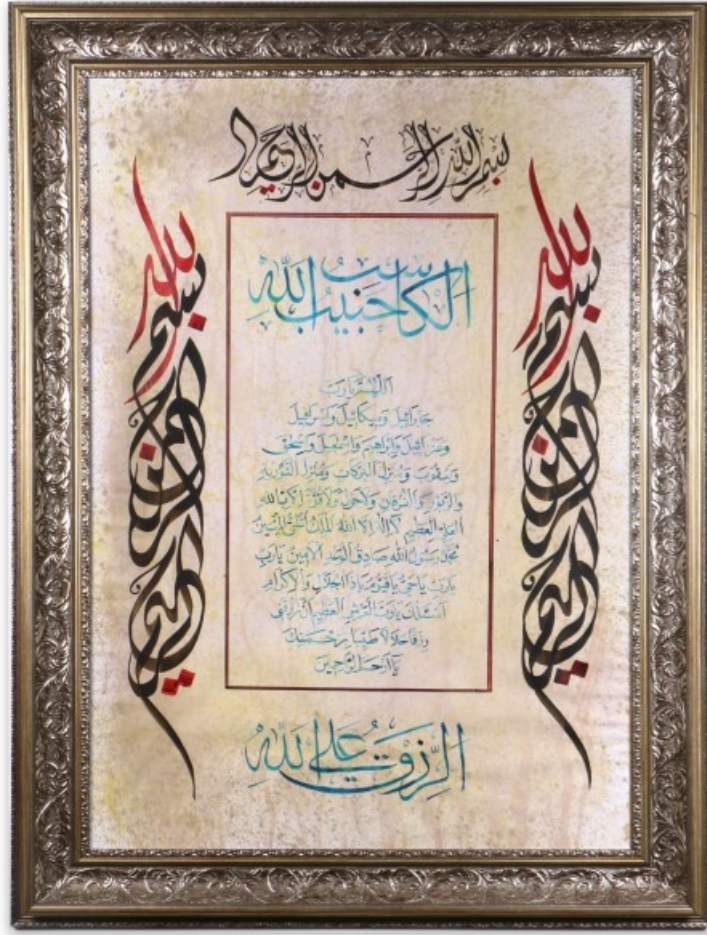 بسم الله الرحمن الرحيم
بسم الله الرحمن الرحيم
بسم الله الرحمن الرحيم
الكاسب حبيب الله
اللهم يا رب
جبرائيل وميكائيل واسرافيل
وعزرائيل وابراهيم واسمعيل واسحق
ويعقوب ومنزل البركات ومنزل التورية
والزبور والفرقان ولا حول ولا قوة الا بالله
العلي العظيم لا اله الا الله الملك الحق المبين
محمد رسول الله صادق الوعد الامين يا رب
يا رب يا حي يا قيوم يا ذا الجلال والاكرام
اسئلك يا رب العرش العظيم ان ترزقني
رزقا حلالا طيبا برحمتك
يا ارحم الراحمين
الرزق على الله